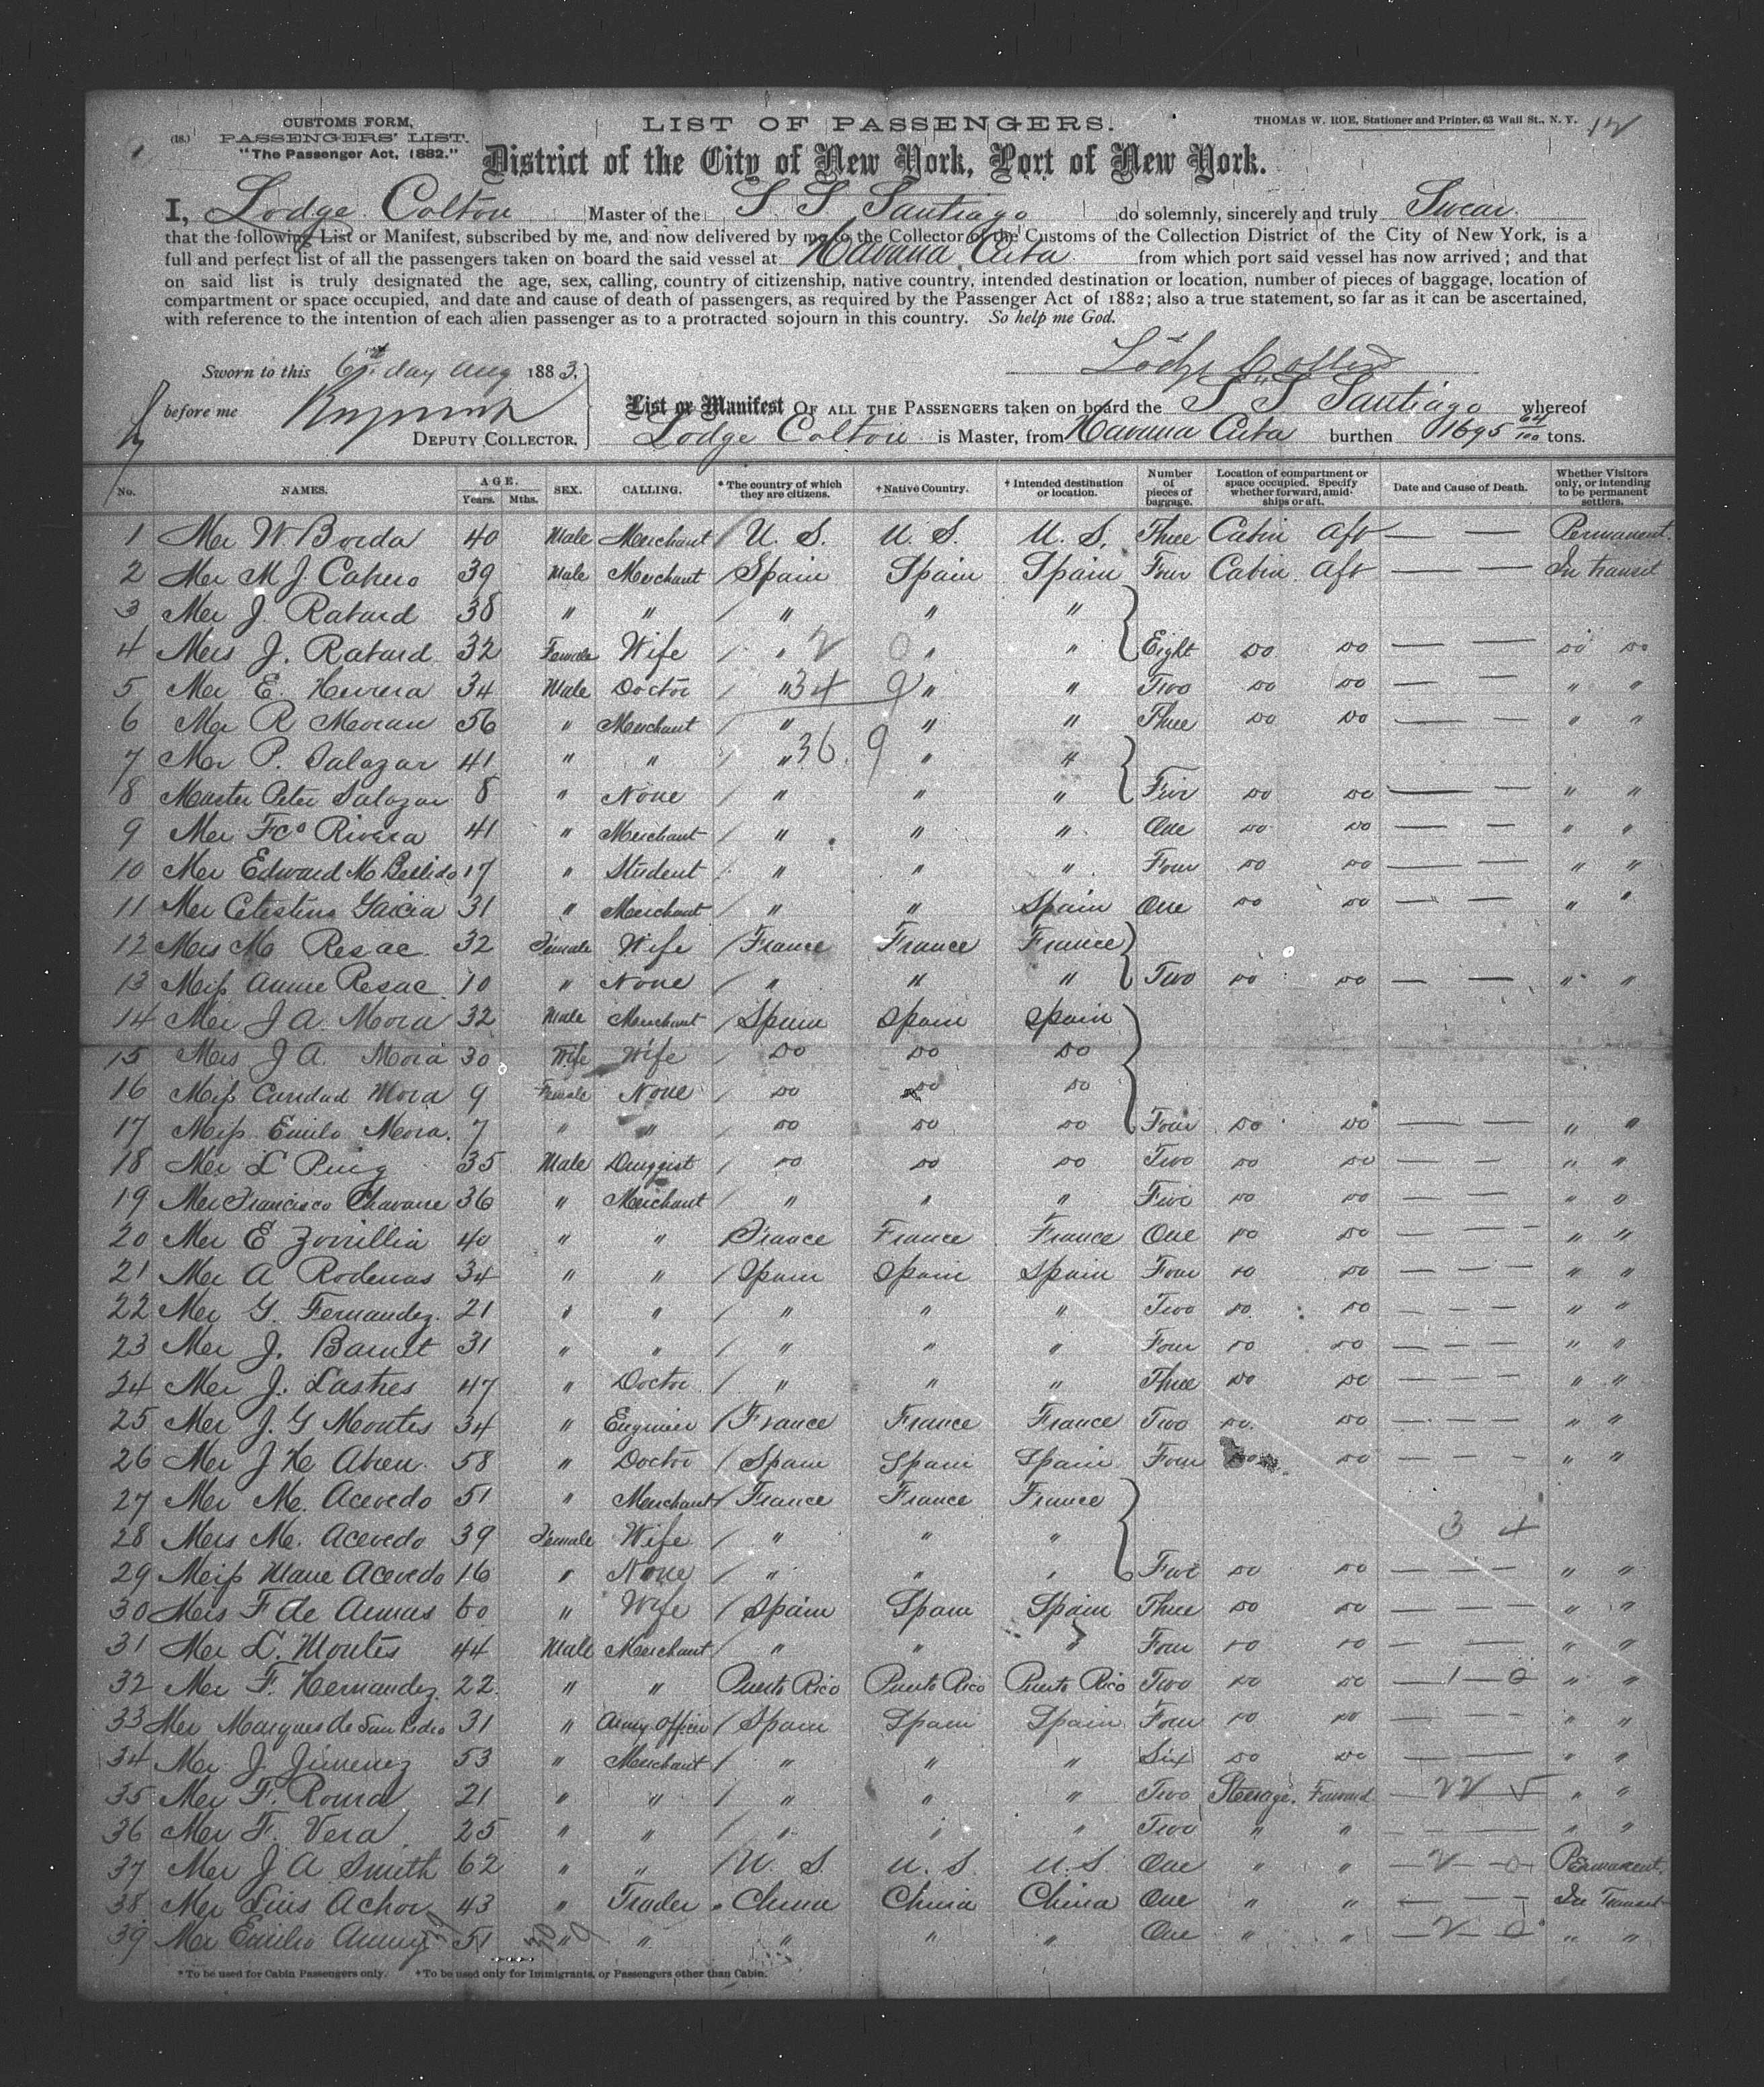 CUSTOMS FORM,
(18.) PASSENGERS' LIST.
"The Passenger Act, 1882."
LIST OF PASSENGERS.
THOMAS W. ROE, Stationer and Printer, 63 Wall St., N. Y. 12
District of the City of New York, Port of New York.
I, Lodge Colton Master of the S S Santiago do solemnly, sincerely and truly Swear
that the following List or Manifest, subscribed by me, and now delivered by me to the Collector of the Customs of the Collection District of the City of New York, is a
full and perfect list of all the passengers taken on board the said vessel at Havana Cuba from which port said vessel has now arrived; and that
on said list is truly designated the age, sex, calling, country of citizenship, native country, intended destination or location, number of pieces of baggage, location of
compartment or space occupied, and date and cause of death of passengers, as required by the Passenger Act of 1882; also a true statement, so far as it can be ascertained,
with reference to the intention of each alien passenger as to a protracted sojourn in this country. So help me God.
Lodge Colton
Sworn to this 6th day Aug 1883.
before me
DEPUTY COLLECTOR.
List or Manifest OF ALL THE PASSENGERS taken on board the S S Santiago whereof
Lodge Colton is Master, from Havana Cuba burthen 1695 04/100 tons.
No. NAMES. AGE. Years. Mths. SEX. CALLING. * The country of which they are citizens. † Native Country. † Intended destination or location. Number of pieces of baggage. Location of compartment or space occupied. Specify whether forward, amidships or aft. Date and Cause of Death. Whether Visitors only, or intending to be permanent settlers.
1 Mr W Borda 40 Male Merchant / U. S. U. S. U. S. Three Cabin Aft — — Permanent
2 Mr M J. Cabrero 39 Male Merchant / Spain Spain Spain Four Cabin Aft — — In transit
3 Mr J. Rabard 38 " " / " " "
4 Mrs J. Rabard 32 Female Wife / " " " Eight do do — — do do
5 Mr E. Herrera 34 Male Doctor / " " " Two do do — — " "
6 Mr R Moran 56 " Merchant / " " " Three do do — — " "
7 Mr P. Salazar 41 " " / " " "
8 Master Peter Salazar 8 " None / " " " Five do do — — " "
9 Mr Fco Rivera 41 " Merchant / " " " One do do — — " "
10 Mr Edward M Bellido 17 " Student / " " " Four do do — — " "
11 Mr Celestino Garcia 31 " Merchant / " " Spain One do do — — " "
12 Mrs M Resac 32 Female Wife / France France France
13 Miss Annie Resac 10 " None / " " " Two do do — — " "
14 Mr J A. Mora 32 Male Merchant / Spain Spain Spain
15 Mrs J A. Mora 30 Wife Wife / do do do
16 Miss Caridad Mora 9 Female None / do do do
17 Miss Emilo Mora. 7 " " / do do do Four do do — — " "
18 Mr L Puig 35 Male Druggist / do do do Two do do — — " "
19 Mr Francisco Chavane 36 " Merchant / " " " Five do do — — " "
20 Mr E Zorrillia 40 " " France France France One do do — — — " "
21 Mr A Rodenas 34 " " / Spain Spain Spain Four do do — — — " "
22 Mr G. Fernandez. 21 " " / " " " Two do do — — — " "
23 Mr J. Barnet 31 " " / " " " Four do do — — — " "
24 Mr J. Lastres 47 " Doctor / " " " Three do do — — — " "
25 Mr J. G Montes 34 " Engineer / France France France Two do do — — — " "
26 Mr J H Abreu 58 " Doctor / Spain Spain Spain Four do do — — — " "
27 Mr M. Acevedo 51 " Merchant / France France France
28 Mrs M. Acevedo 39 Female Wife / " " " 3 4
29 Miss Marie Acevedo 16 " None / " " " Five do do — — — " "
30 Mrs F de Armas 60 " Wife / Spain Spain Spain Three do do — — — " "
31 Mr L. Montes 44 Male Merchant / " " " Four do do — — " "
32 Mr F. Hernandez 22 " " Puerto Rico Puerto Rico Puerto Rico Two do do — 1 — 0 " "
33 Mr Marques de San Pedro 31 " Army Officer / Spain Spain Spain Four do do — — — " "
34 Mr J. Jimenez 53 " Merchant / " " " Six do do — — " "
35 Mr F. Roura 21 " " / " " " Two Steerage. Forward — 22 5 " "
36 Mr F. Vera 25 " " / " " " Two " " — — — " "
37 Mr J A Smith 62 " " / U. S. U. S. U. S. One " " — 2 — 0 Permanent
38 Mr Luis Achon 43 " Trader China China China One " " — — — In Transit
39 Mr Emilio 51 " " " " " One " " — 2 — 0 " "
* To be used for Cabin Passengers only. † To be used only for Immigrants, or Passengers other than Cabin.